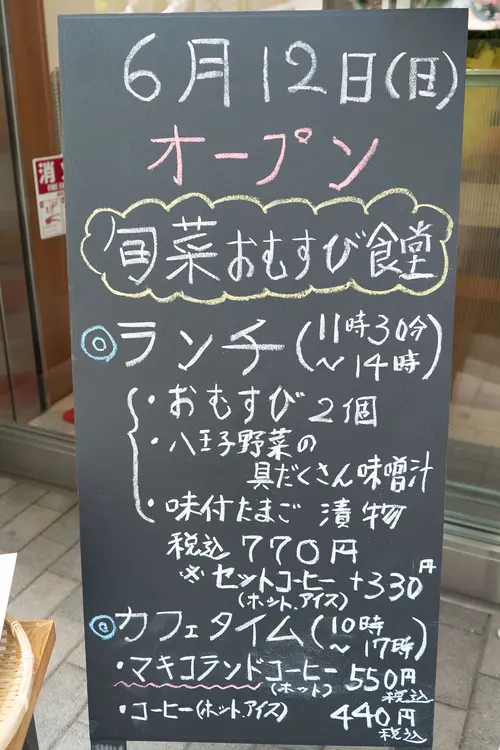 6月12日(日)
オープン
旬菜おむすび食堂
消火
FIRE
◎ランチ(11時30分
～14時)
・おむすび2個
・八王子野菜の
具だくさん味噌汁
・味付たまご 漬物
税込770円
※セットコーヒー+330円
(ホット、アイス)
◎カフェタイム(10時
～17時)
・マキコランドコーヒー 550円
(ホット) 税込
・コーヒー(ホット、アイス) 440円
税込